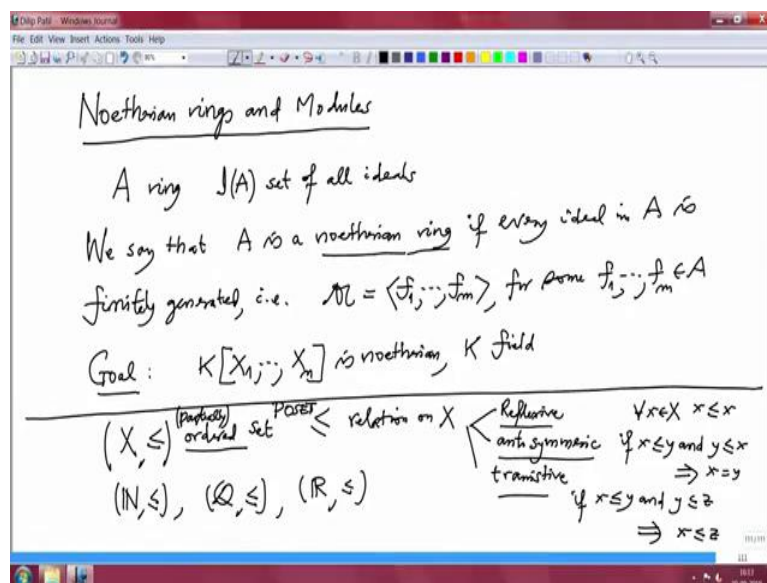 Dilip Patil - Windows Journal
File Edit View Insert Actions Tools Help
Noetherian rings and Modules
A ring J(A) set of all ideals
We say that A is a noetherian ring if every ideal in A is
finitely generated, i.e. 𝔞 = ⟨f₁,…,fₘ⟩, for some f₁,…,fₘ ∈ A
Goal : K[X₁,…,Xₙ] is noetherian, K field
(X, ≤) (partially) ordered set POSET ≤ relation on X
Reflexive ∀x∈X x≤x
anti symmetric if x≤y and y≤x
⇒ x=y
tranistive if x≤y and y≤z
⇒ x≤z
(ℕ,≤), (ℚ,≤), (ℝ,≤)